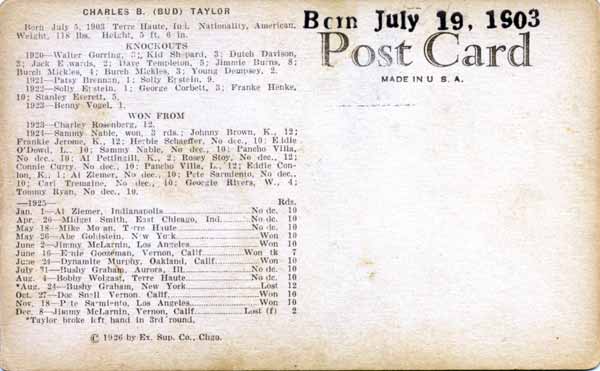 CHARLES B. (BUD) TAYLOR
Born July 5, 1903 Terre Haute, Ind. Nationality, American.
Weight, 118 lbs. Height, 5 ft. 6 in.
KNOCKOUTS
1920—Walter Gorring, 3; Kid Shepard, 3; Dutch Davison,
3; Jack Edwards, 2; Dave Templeton, 5; Jimmie Burns, 8;
Burch Mickles, 4; Burch Mickles, 3; Young Dempsey, 2.
1921—Patsy Brennan, 1; Solly Epstein, 9.
1922—Solly Epstein, 1; George Corbett, 3; Franke Henke,
10; Stanley Everett, 5.
1923—Benny Vogel, 1.
WON FROM
1923—Charley Rosenberg, 12.
1924—Sammy Nable, won, 3 rds.; Johnny Brown, K., 12;
Frankie Jerome, K., 12; Herbie Schaeffer, No dec., 10; Eddie
O'Dowd, L., 10; Sammy Nable, No dec., 10; Pancho Villa,
No dec., 10; Al Pettingill, K., 2; Rosey Stoy, No dec., 12;
Connie Curry, No dec., 10; Pancho Villa, L., 12; Eddie Con-
lon, K., 1; Al Ziemer, No dec., 10; Pete Sarmiento, No dec.,
10; Carl Tremaine, No dec., 10; Georgie Rivers, W., 4;
Tommy Ryan, No dec., 10.
—1925— Rds.
Jan. 1—Al Ziemer, Indianapolis No dc. 10
Apr. 26—Midget Smith, East Chicago, Ind. No dc. 10
May 18—Mike Moran, Terre Haute No dc. 10
May 26—Abe Goldstein, New York Won 10
June 2—Jimmy McLarnin, Los Angeles Won 10
June 16—Ernie Goozeman, Vernon, Calif. Won tk 7
June 24—Dynamite Murphy, Oakland, Calif. Won 10
July 31—Bushy Graham, Aurora, Ill. No dc. 10
Aug. 4—Bobby Wolgast, Terre Haute No dc. 10
*Aug. 24—Bushy Graham, New York Lost 12
Oct. 27—Doc Snell Vernon, Calif. Won 10
Nov. 18—Pete Sarmiento, Los Angeles Won 10
Dec. 8—Jimmy McLarnin, Vernon, Calif. Lost (f) 2
*Taylor broke left hand in 3rd round.
© 1926 by Ex. Sup. Co., Chgo.
Born July 19, 1903
Post Card
MADE IN U S A.